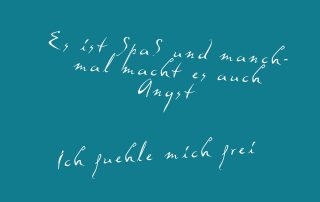 Es ist Spaß und manch-
mal macht es auch
Angst
Ich fuehle mich frei